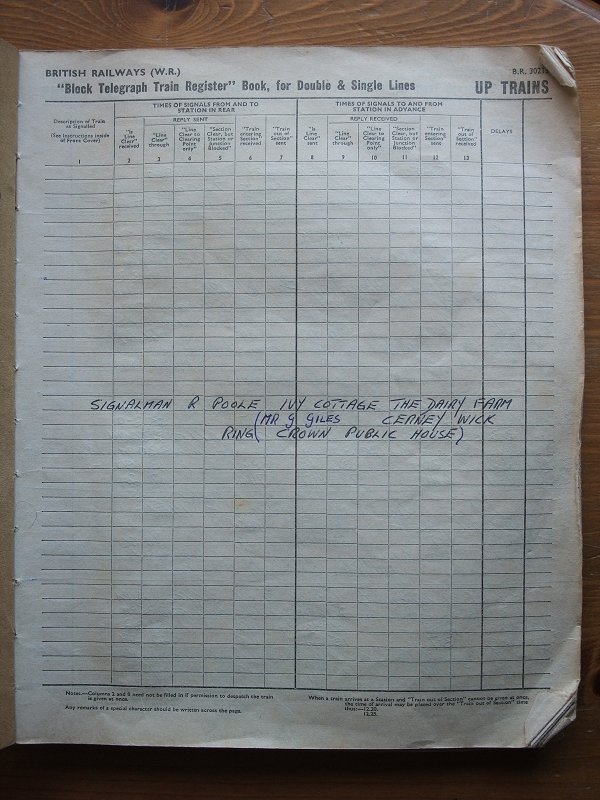 BRITISH RAILWAYS (W.R.)
B.R. 30215
"Block Telegraph Train Register" Book, for Double & Single Lines
UP TRAINS
Description of Train as Signalled
(See Instructions inside of Front Cover)
TIMES OF SIGNALS FROM AND TO STATION IN REAR
TIMES OF SIGNALS TO AND FROM STATION IN ADVANCE
DELAYS
REPLY SENT
REPLY RECEIVED
"Is Line Clear" received
"Line Clear" through
"Line Clear to Clearing Point only"
"Section Clear, but Station or Junction Blocked"
"Train entering Section" received
"Train out of Section" sent
"Is Line Clear" sent
"Line Clear" through
"Line Clear to Clearing Point only"
"Section Clear, but Station or Junction Blocked"
"Train entering Section" sent
"Train out of Section" received
1 2 3 4 5 6 7 8 9 10 11 12 13
SIGNALMAN R POOLE IVY COTTAGE THE DAIRY FARM
(MR G GILES CERNEY WICK
RING ( CROWN PUBLIC HOUSE)
Notes.—Columns 3 and 9 need not be filled in if permission to despatch the train
is given at once.
Any remarks of a special character should be written across the page.
When a train arrives at a Station and "Train out of Section" cannot be given at once,
the time of arrival may be placed over the "Train out of Section" time
thus:—12.20.
12.25.